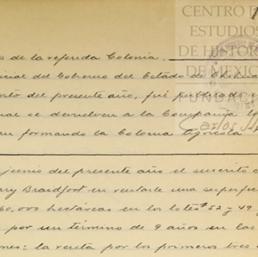 CENTRO DE
ESTUDIOS
DE HISTORIA
DE MEXICO
FUNDA
de la referida Colonia.
del Gobierno del Estado de
del presente año, fué publicado
se devuelven a la Compañía
formando la Colonia Agrícola
junio del presente año el suscrito
Bradfort en rentarle una superfi
0,000 hectáreas en los lotes # 52 y 49
por un término de 9 años en las
nes: la renta por los primeros tres